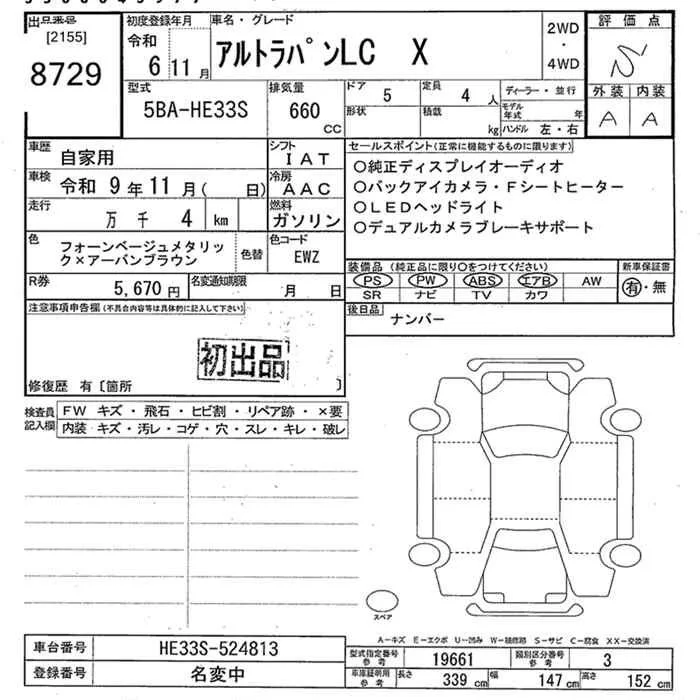 出品番号
[2155]
8729
初度登録年月
令和
6 11月
車名・グレード
アルトラパンLC X
2WD
・
4WD
評価点
S
外装 内装
A A
型式
5BA-HE33S
排気量
660
CC
ドア
5
定員
4 人
形状
積載
kg
ディーラー・並行
モデル年式 年
ハンドル 左・右
車歴
自家用
シフト
IAT
車検
令和 9年11月( 日)
冷房
AAC
走行
万 千 4 km
燃料
ガソリン
色
フォーンベージュメタリッ
ク×アーバンブラウン
色替
色コード
EWZ
R券
5,670円
名変通知期限
月 日
セールスポイント(正常に機能するものに限ります)
○純正ディスプレイオーディオ
○バックアイカメラ・Fシートヒーター
○LEDヘッドライト
○デュアルカメラブレーキサポート
装備品 (純正品に限り○をつけてください)
PS PW ABS エアB AW
SR ナビ TV カワ
新車保証書
有・無
後日品
ナンバー
注意事項申告欄(不具合内容等は具体的に記入して下さい)
初出品
修復歴 有〔箇所 〕
検査員
記入欄
FW キズ・飛石・ヒビ割・リペア跡・×要
内装 キズ・汚レ・コゲ・穴・スレ・キレ・破レ
スペア
A－キズ E－エクボ U－凹み W－補修跡 S－サビ C－腐食 XX－交換済
車台番号
HE33S-524813
登録番号
名変中
型式指定番号
参考
19661
類別区分番号
参考
3
車庫証明用
参考
長さ
339 cm
幅
147 cm
高さ
152 cm